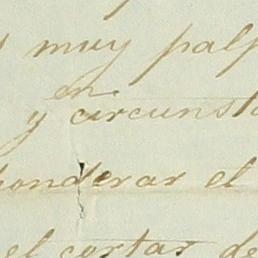 muy palp
en
y circunst
ponderar el
el cortar de